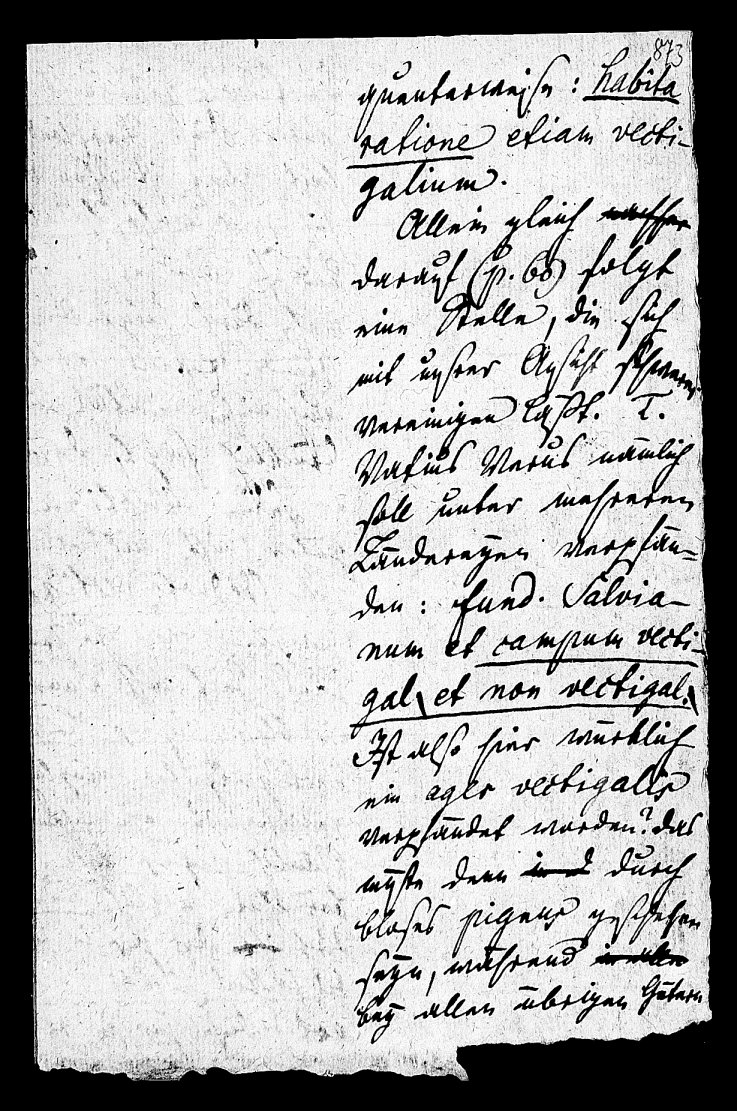 873
quenterweise: habita
ratione etiam vecti-
galium.
Allein gleich nachher
darauf (p. 60) folgt
eine Stelle, die sich
mit unsrer Ansicht schwerer
vereinigen läßt. T.
Vafius Verus nämlich
soll unter mehreren
Ländereyen verpfän-
den: fund. Salvia-
num et campum vecti-
gal. et non vectigal.
Ist also hier würklich
ein ager vectigalis
verpfändet worden? Das
müste denn durch
bloses pignus geschehen
seyn, während in allen
bey allen übrigen Gütern